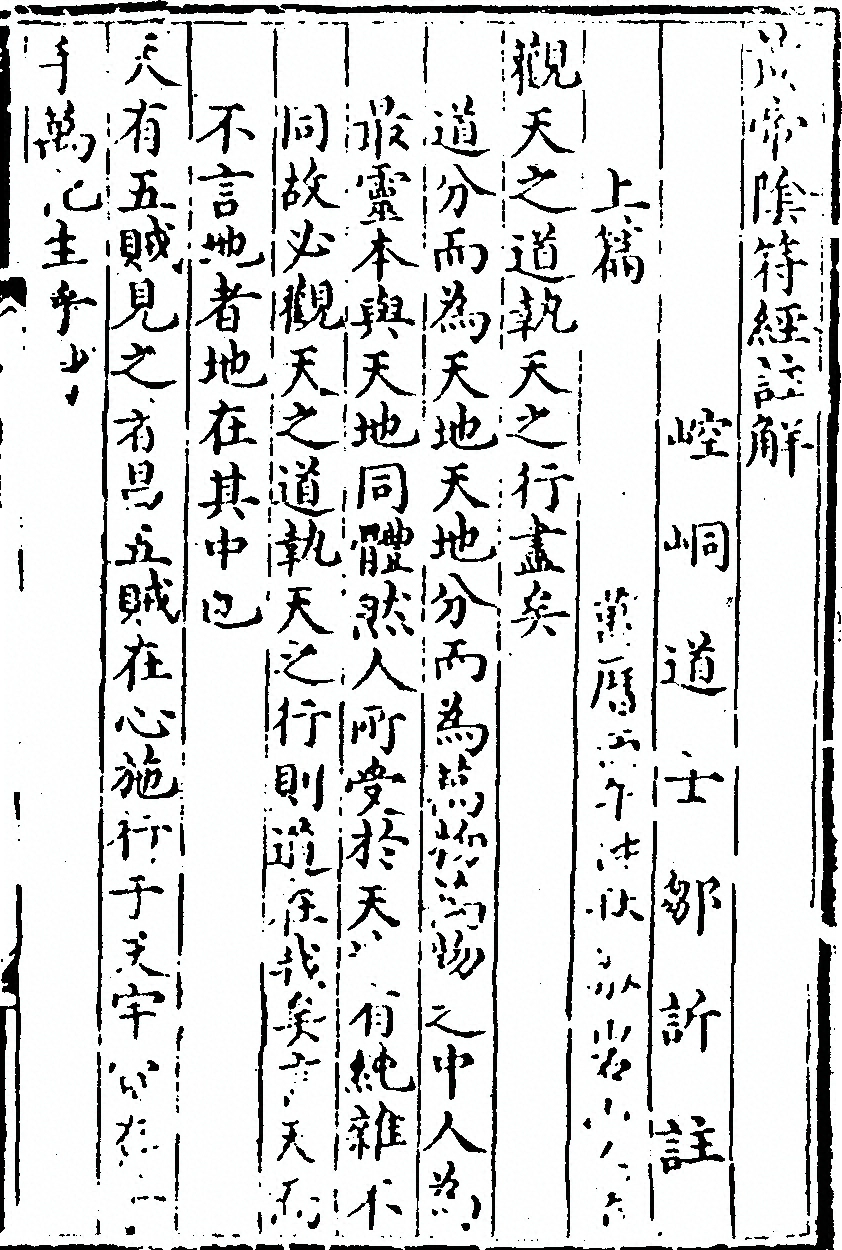 黄帝陰符經註解
崆峒道士鄒訢註
上篇
萬曆
觀天之道執天之行盡矣
道分而為天地天地分而為萬物萬物之中人為
最靈本與天地同體然人所受於天 有純雜不
同故必觀天之道執天之行則道在我矣言天而
不言地者地在其中也
天有五賊見之者昌五賊在心施行于天宇宙在
手萬化生乎